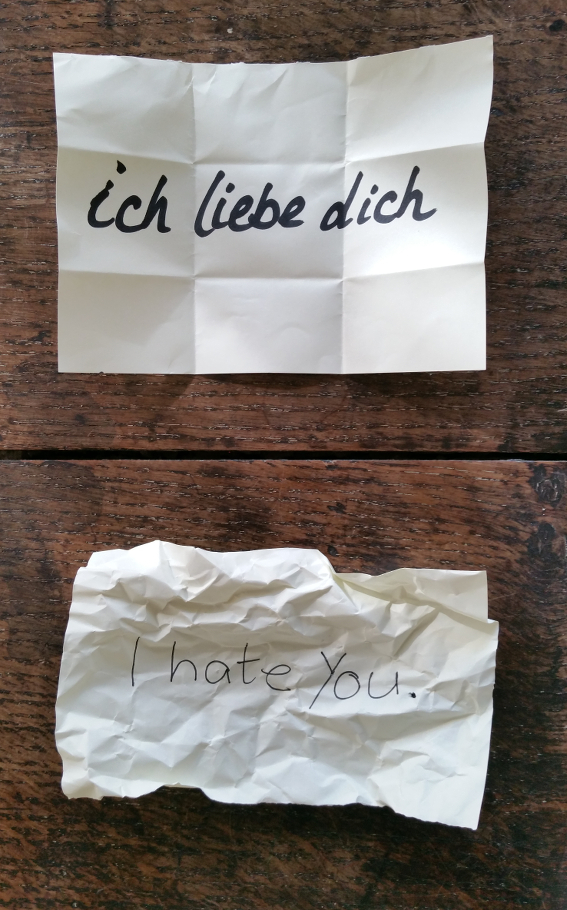 ich liebe dich
I hate you.